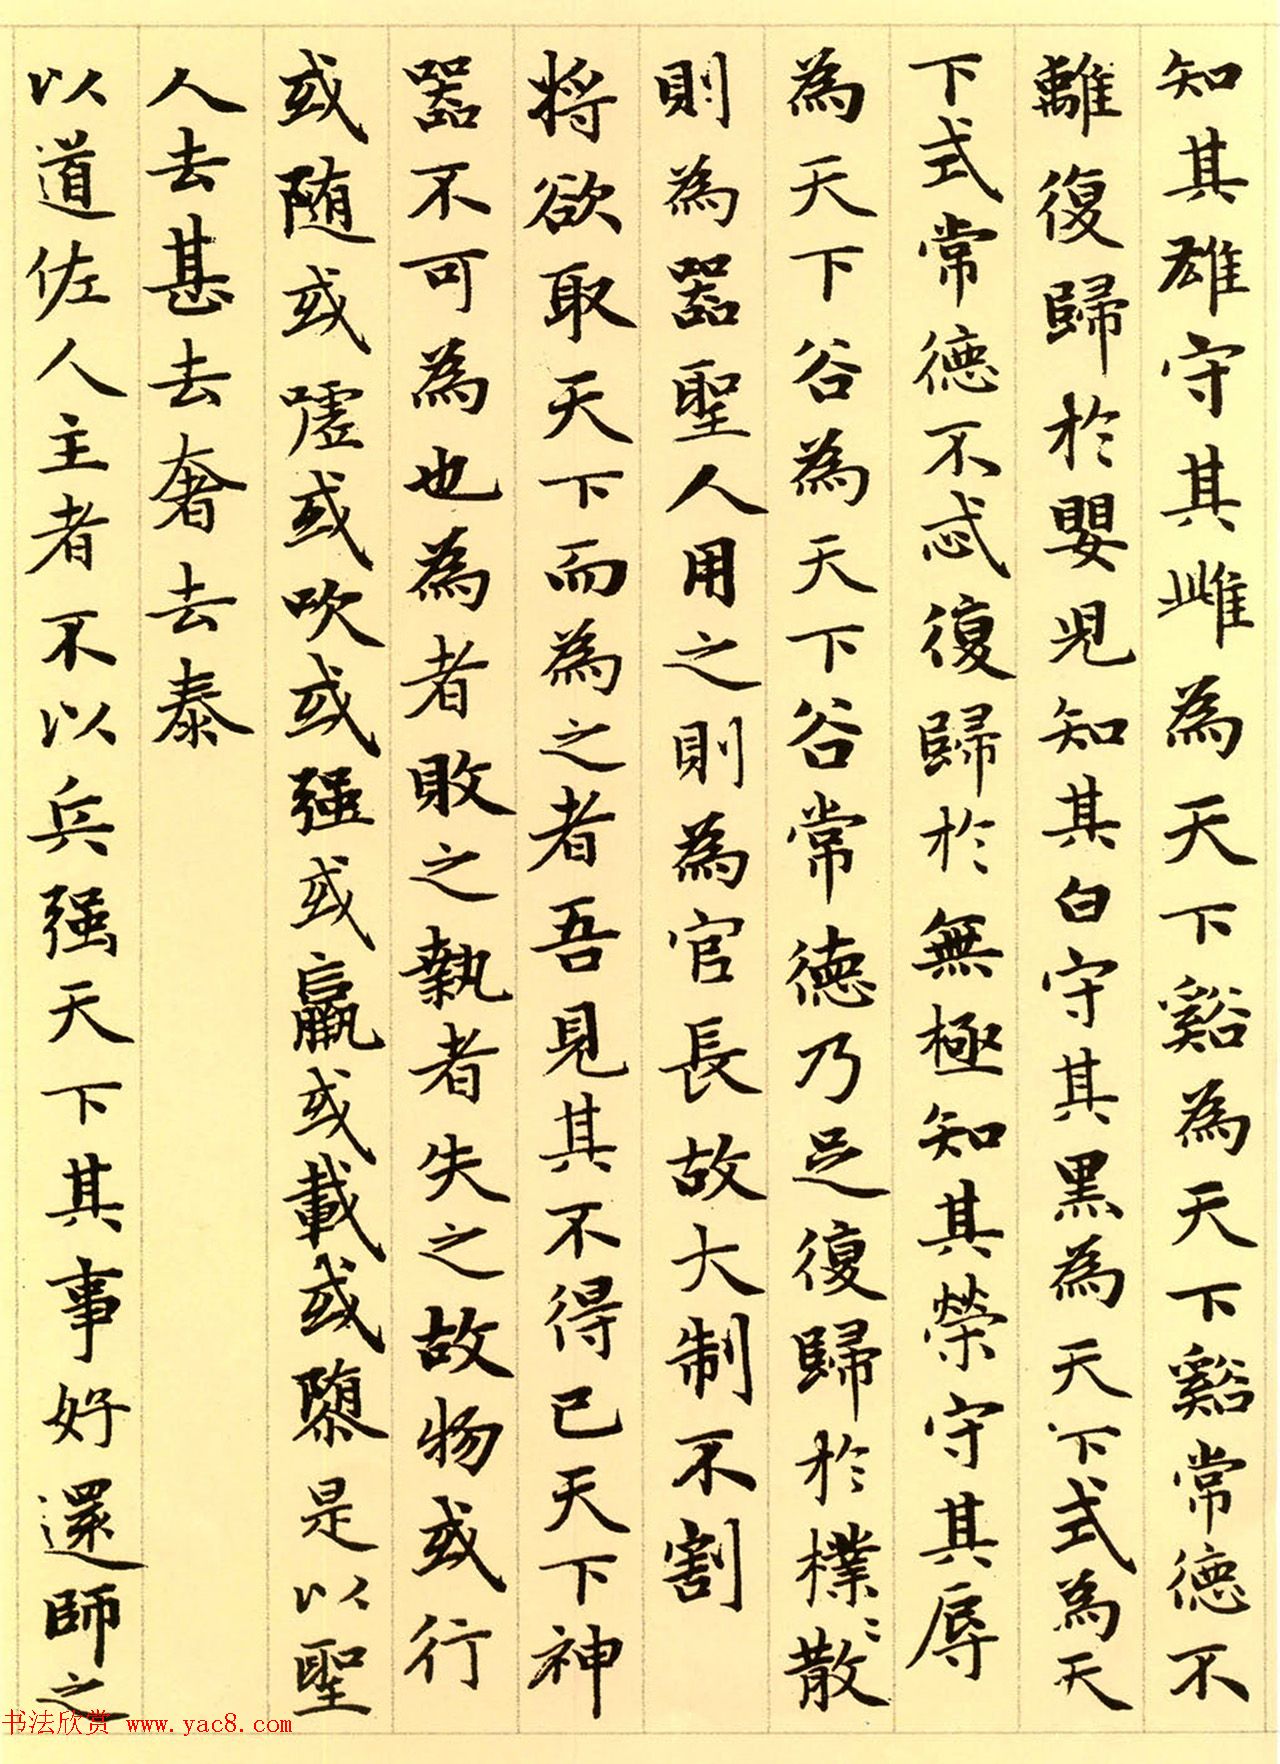 知其雄守其雌為天下谿為天下谿常德不
離復歸於嬰兒知其白守其黑為天下式為天
下式常德不忒復歸於無極知其榮守其辱
為天下谷為天下谷常德乃足復歸於樸〻散
則為器聖人用之則為官長故大制不割
将欲取天下而為之者吾見其不得已天下神
器不可為也為者敗之執者失之故物或行
或随或嘘或吹或强或羸或載或隳是以聖
人去甚去奢去泰
以道佐人主者不以兵强天下其事好還師之
书法欣赏 www.yac8.com